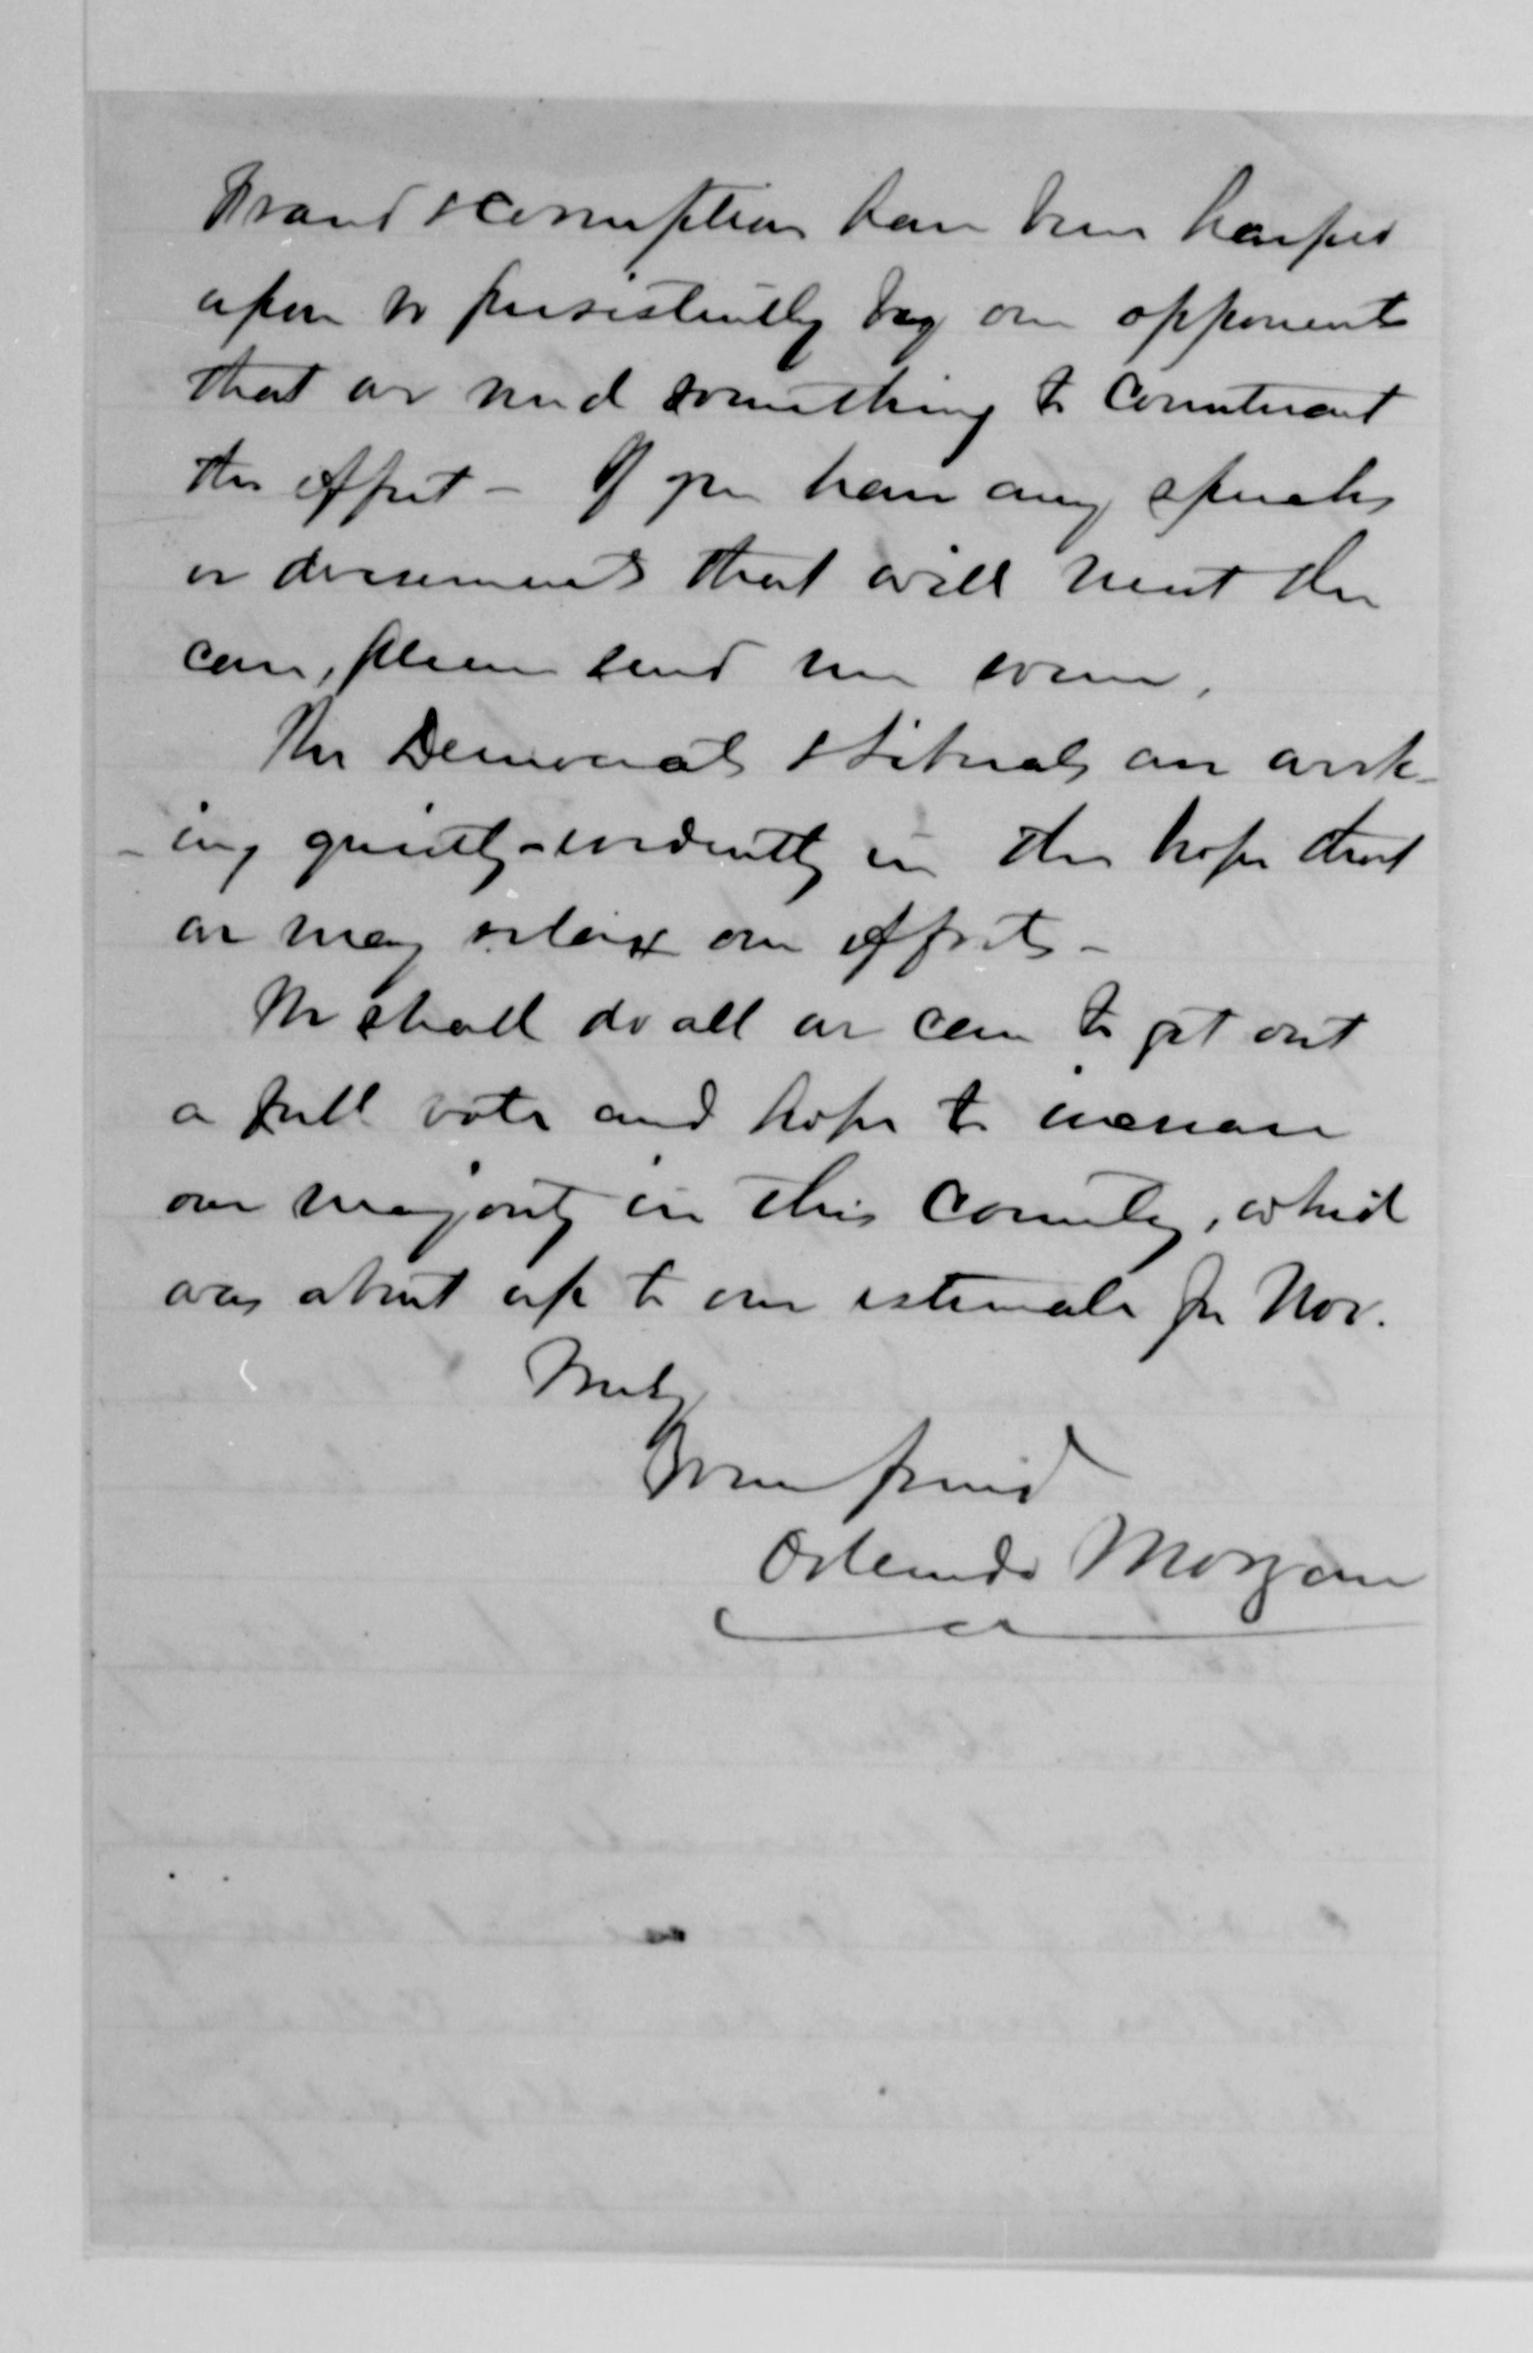 Fraud & Corruption have been harped
upon so persistently by our opponents
that we need something to counteract
the effect – If you have any speeches
or documents that will meet the
case, please send me some.
The Democrats & Liberals are work-
-ing quietly – evidently in the hope that
we may relax our efforts –
We shall do all we can to get out
a full vote and hope to increase
our majority in this County, which
was about up to our estimate for Nov.
Truly
Your friend
Orlando Morgan